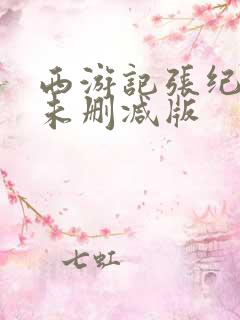 西游記張纪
未删减版
七虹